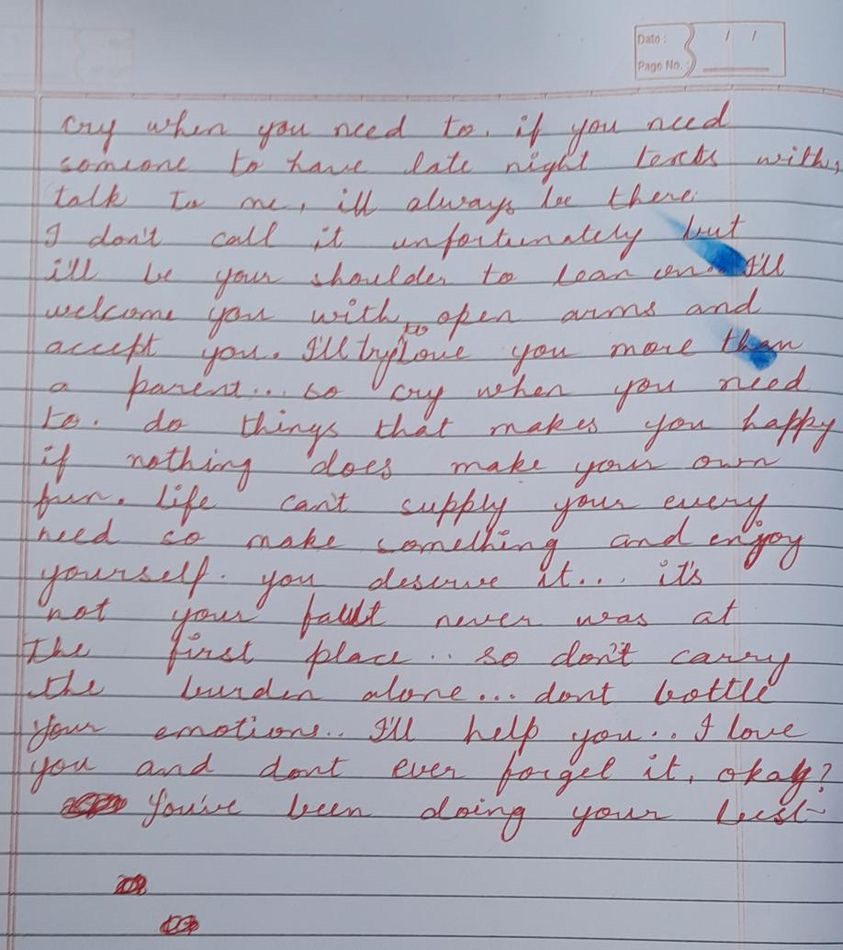 Date : / /
Page No. :
cry when you need to. if you need
someone to have late night texts with,
talk to me, ill always be there.
I don't call it unfortunately but
i'll be your shoulder to lean on. I'll
welcome you with open arms and
accept you. I'll try to love you more than
a parent... so cry when you need
to. do things that makes you happy
if nothing does make your own
fun. life can't supply your every
need so make something and enjoy
yourself. you deserve it... it's
not your fault never was at
the first place.. so don't carry
the burden alone... dont bottle
your emotions.. I'll help you.. I love
you and dont ever forget it, okay?
You've been doing your best~